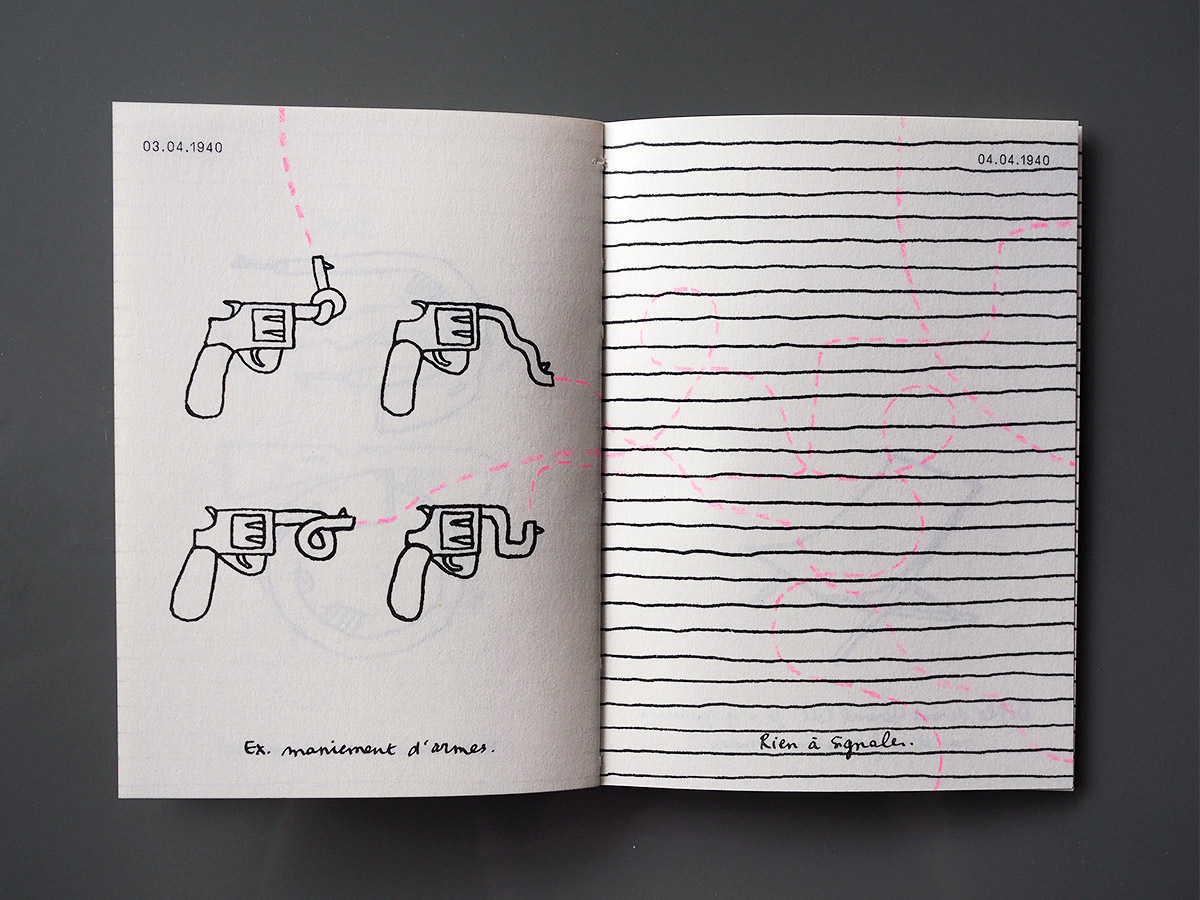 03.04.1940
Ex. maniement d'armes.
04.04.1940
Rien à signaler.